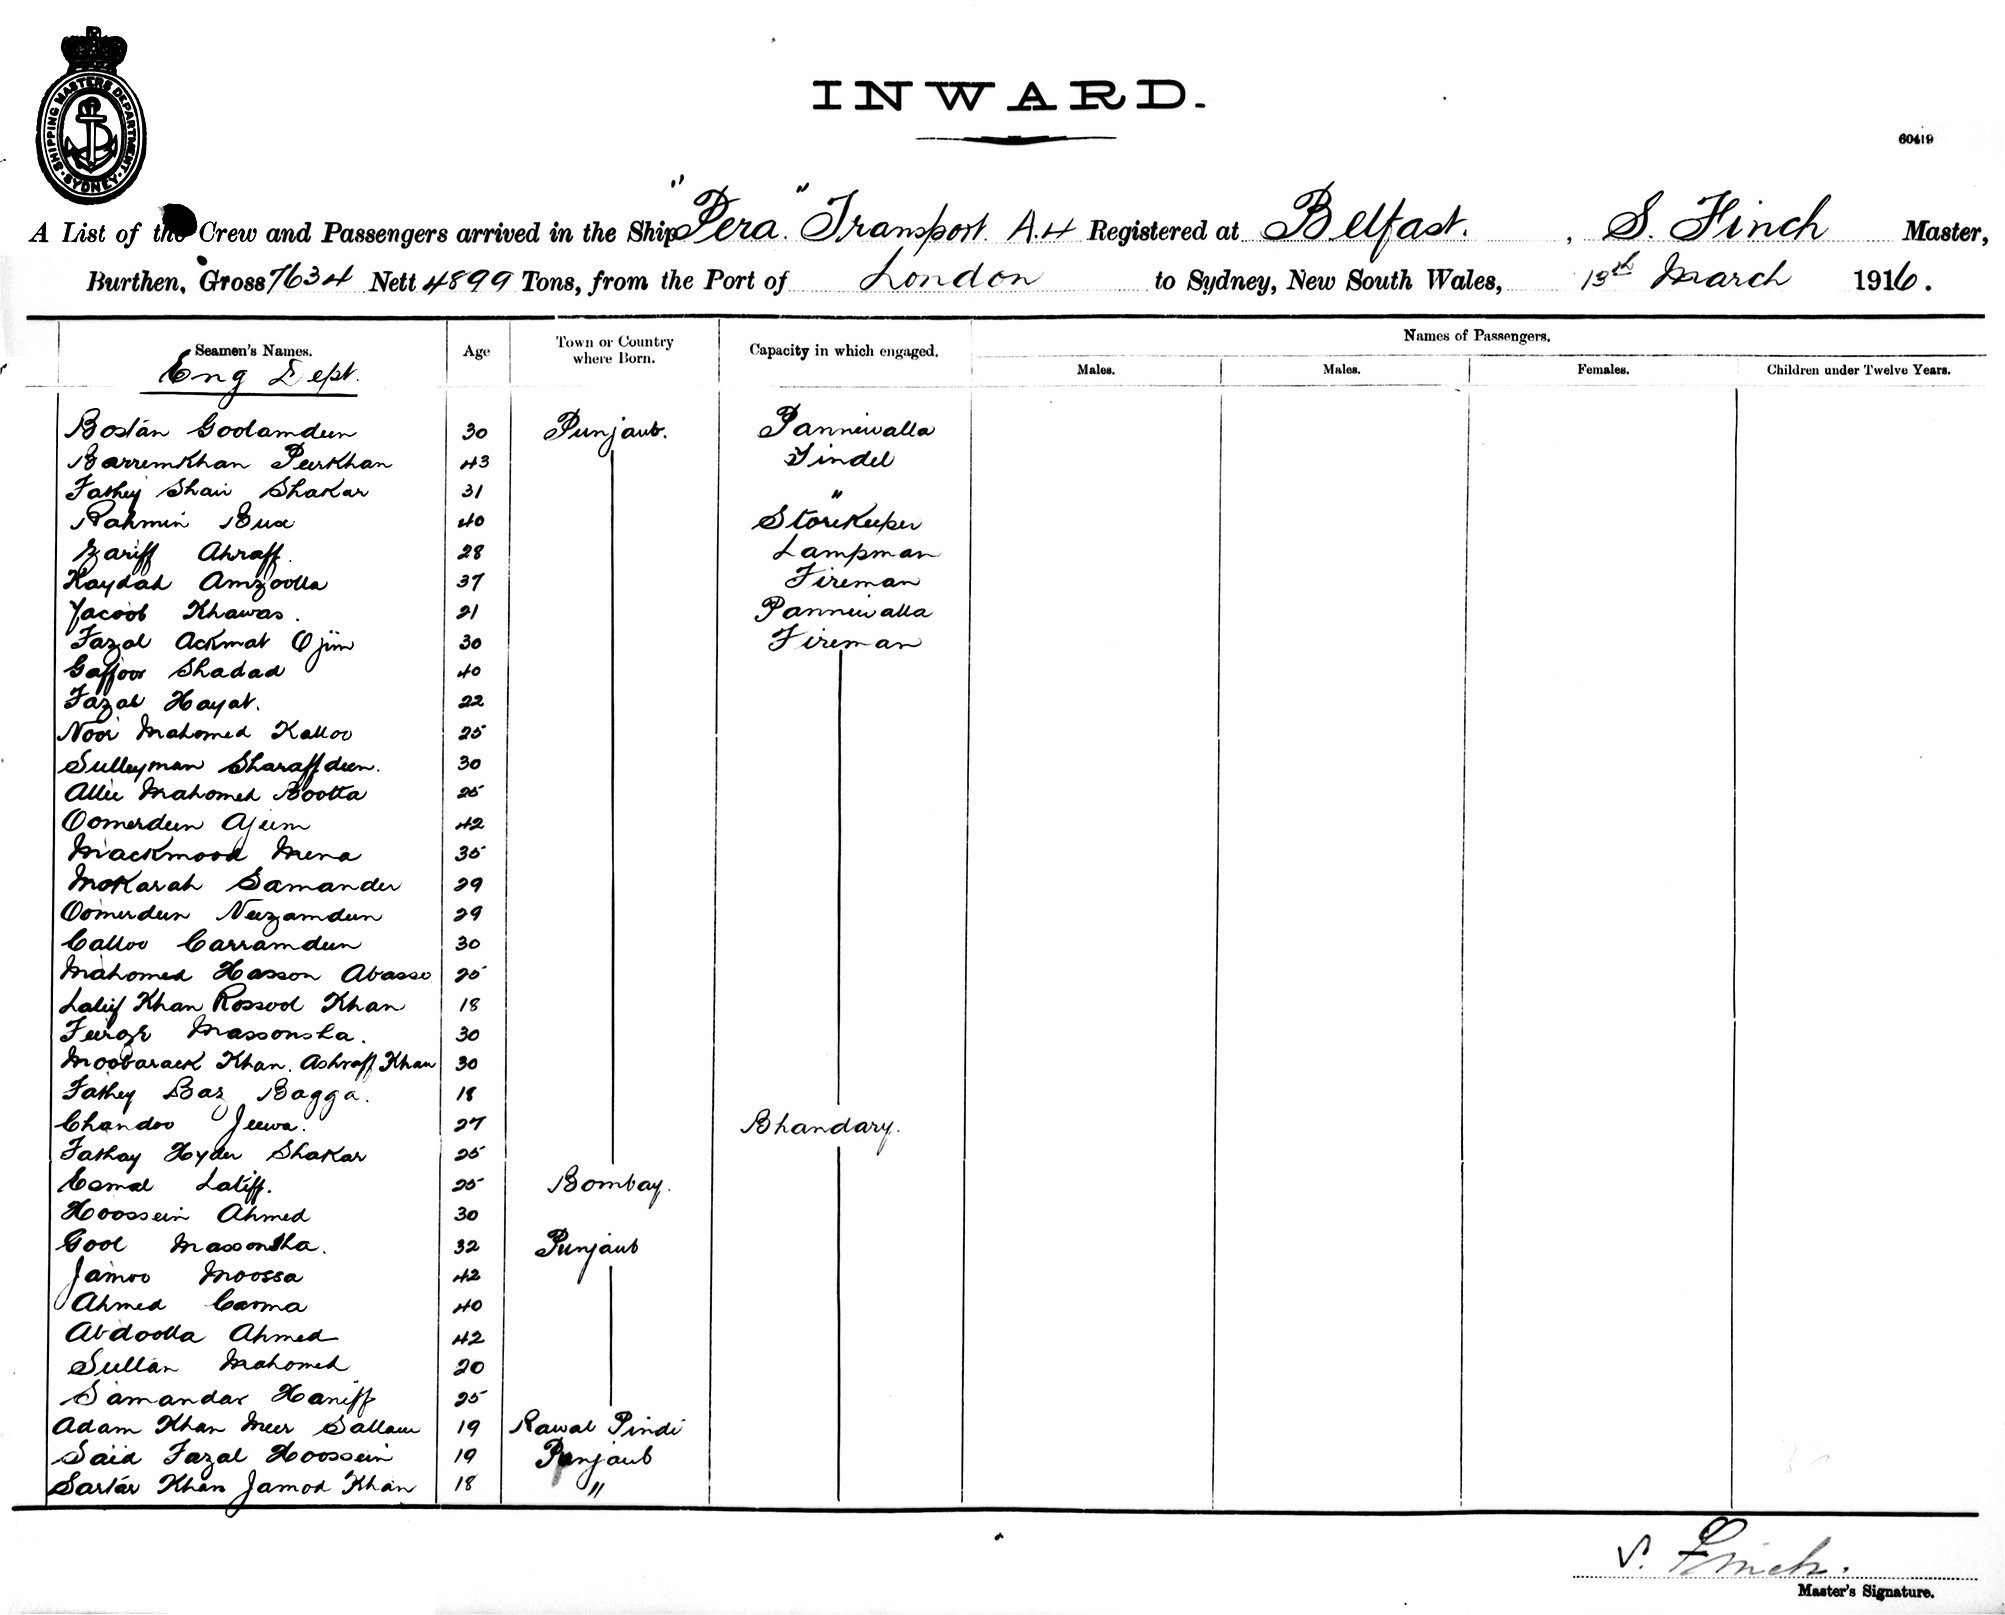 SHIPPING MASTERS DEPARTMENT. SYDNEY.
INWARD.
60419
A List of the Crew and Passengers arrived in the Ship "Pera" Transport. A.4 Registered at Belfast. , S. Finch Master,
Burthen, Gross 7634 Nett 4899 Tons, from the Port of London to Sydney, New South Wales, 13th March 1916.
Seamen's Names. Age Town or Country where Born. Capacity in which engaged. Names of Passengers.
Males. Males. Females. Children under Twelve Years.
Eng Dept.
Bostan Goolamdeen 30 Punjaub. Panniwalla
Barremkhan Peerkhan 43 Tindel
Fathey Shair Shakar 31 "
Rahmin Bux 40 Storekeeper
Zariff Ahraff. 28 Lampman
Haydah Amzoolla 37 Fireman
Yacoob Khawas. 21 Panniwalla
Fazal Ackmat Ojim 30 Fireman
Gaffoor Shadad 40
Fazal Hayat. 22
Noor Mahomed Kalloo 25
Sulleyman Sharaffdeen. 30
Allie Mahomed Bootta 25
Oomerdeen Ajeem 42
Mackmood Mena 35
Mokarah Samander 29
Oomerdeen Neezamdeen 29
Calloo Carramdeen 30
Mahomed Hasson Abasso 25
Latief Khan Rossool Khan 18
Feeroze Massonsha. 30
Moobarack Khan. Ashraff Khan 30
Fathey Baz Bagga. 18
Chandoo Jeewa. 27 Bhandary.
Fathay Hyder Shakar 25
Esmal Latiff. 25 Bombay.
Hoossein Ahmed 30
Gool Massonsha. 32 Punjaub
Jamoo Moossa 42
Ahmed Carma 40
Abdoolla Ahmed 42
Sultan Mahomed 20
Samandar Haniff 25
Adam Khan Meer Sallam 19 Rawal Pindi
Said Fazal Hoossein 19 Punjaub
Sartar Khan Jamod Khan 18 "
S. Finch.
Master's Signature.